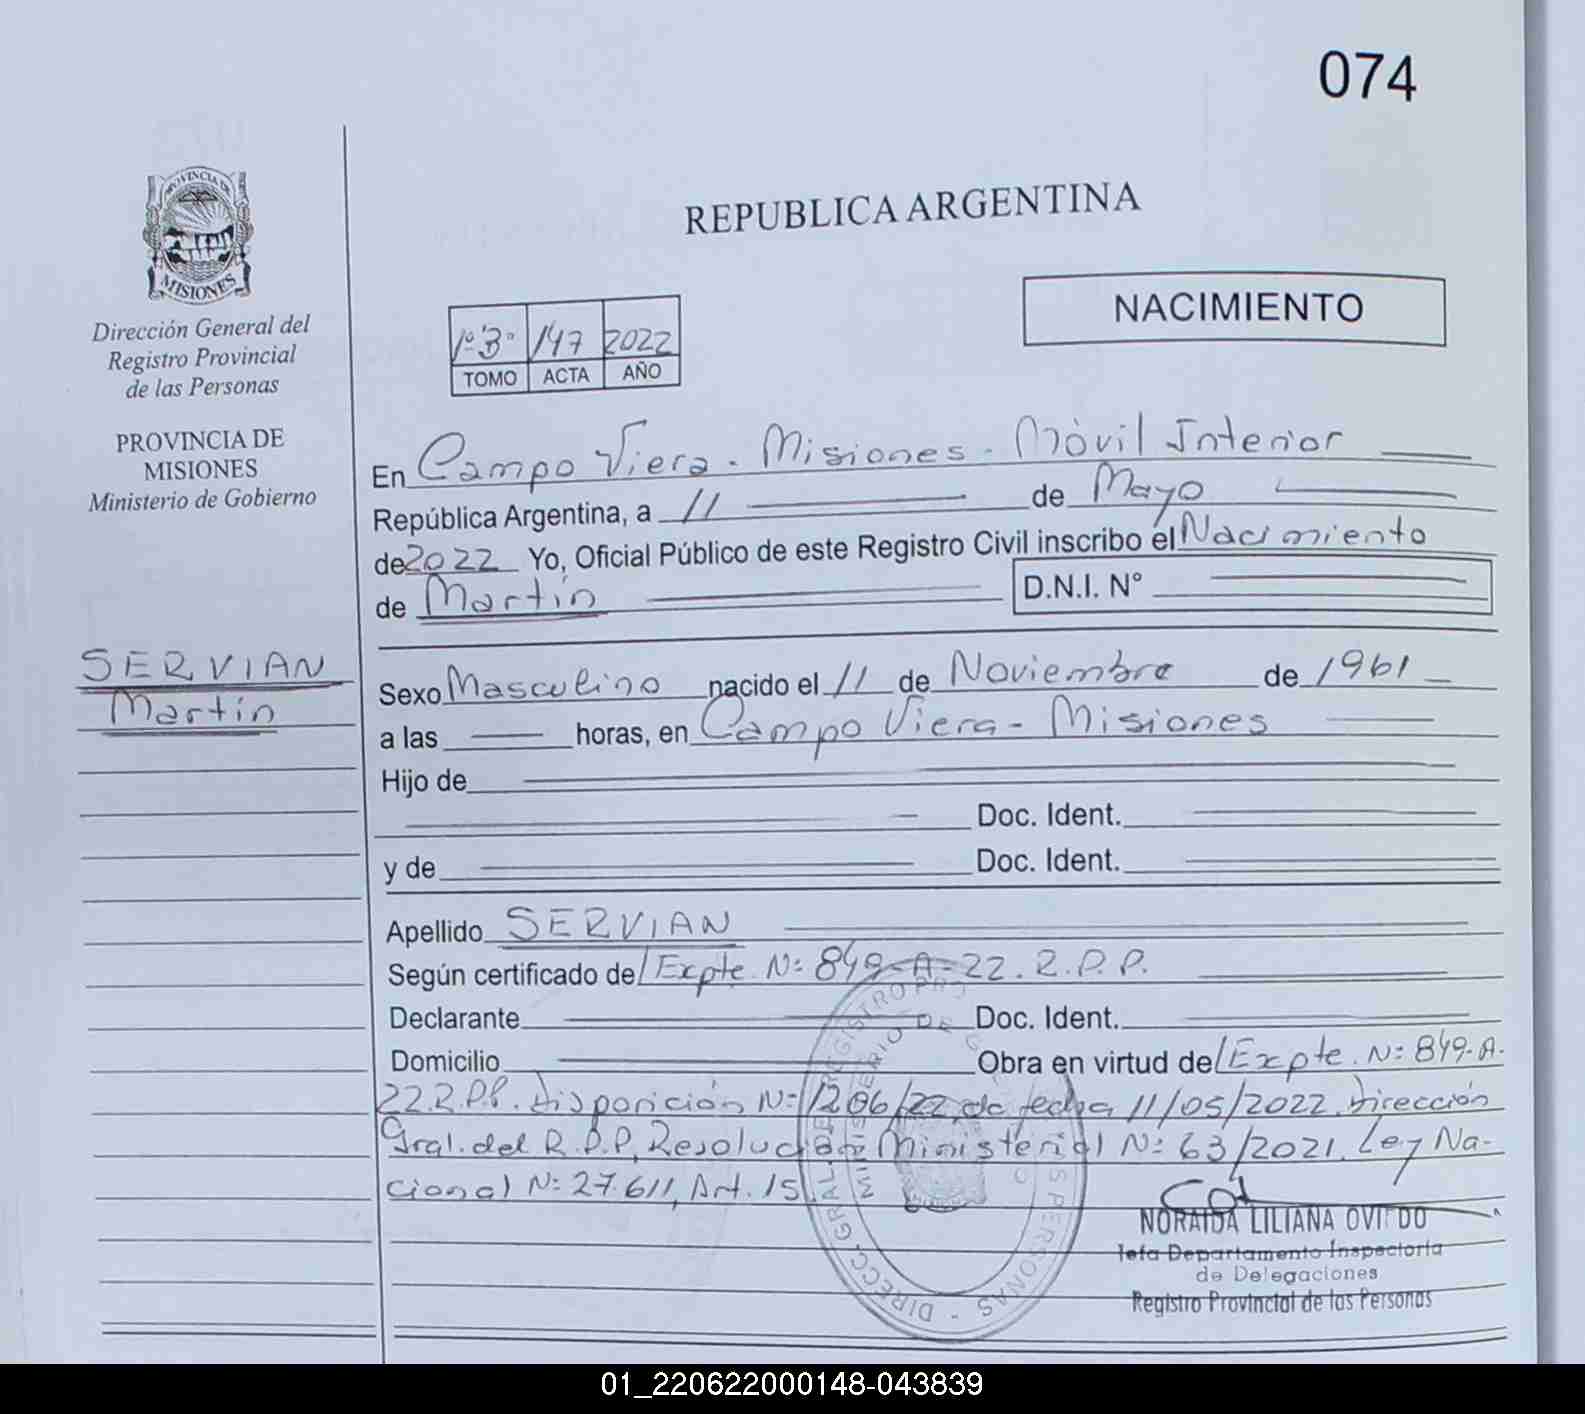 074
PROVINCIA DE
MISIONES
Dirección General del
Registro Provincial
de las Personas
PROVINCIA DE
MISIONES
Ministerio de Gobierno
SERVIAN
Martín
REPUBLICA ARGENTINA
NACIMIENTO
1º"B" 147 2022
TOMO ACTA AÑO
En Campo Viera - Misiones - Móvil Interior
República Argentina, a 11 de Mayo
de 2022 Yo, Oficial Público de este Registro Civil inscribo el Nacimiento
de Martín D.N.I. N°
Sexo Masculino nacido el 11 de Noviembre de 1961
a las horas, en Campo Viera - Misiones
Hijo de
Doc. Ident.
y de Doc. Ident.
Apellido SERVIAN
Según certificado de Expte. Nº 849-A-22. R.P.P.
Declarante Doc. Ident.
Domicilio Obra en virtud de Expte. Nº 849-A-
22.R.P.P. Disposición Nº 1206/22 de fecha 11/05/2022. Dirección
Gral. del R.P.P, Resolución Ministerial Nº 63/2021. Ley Na-
cional Nº 27.611, Art. 15
NORAIDA LILIANA OVIEDO
Jefa Departamento Inspectoría
de Delegaciones
Registro Provincial de las Personas
01_220622000148-043839